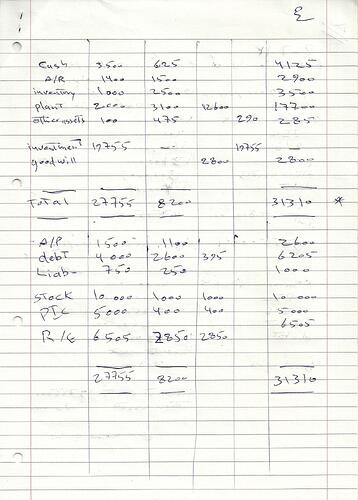 Σ
Cash 3500 625 4125
A/R 1400 1500 2900
inventory 1000 2500 3500
plant 2000 3100 12600 17700
other assets 100 475 290 285
investment 19755 — 19755 —
goodwill 2800 2800
Total 27755 8200 31310 *
A/P 1500 1100 2600
debt 4000 2600 395 6205
Liab- 750 250 1000
Stock 10 000 1000 1000 10 000
PIC 5000 400 400 5000
R/E 6505 2850 2850 6505
27755 8200 31310